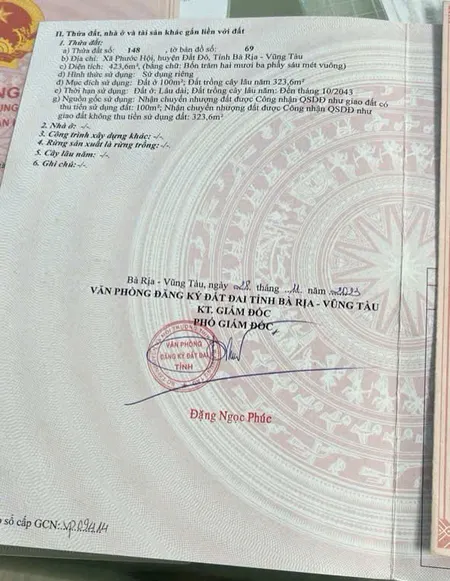 II. Thửa đất, nhà ở và tài sản khác gắn liền với đất
1. Thửa đất:
a) Thửa đất số: 148 , tờ bản đồ số: 69
b) Địa chỉ: Xã Phước Hội, huyện Đất Đỏ, Tỉnh Bà Rịa - Vũng Tàu
c) Diện tích: 423,6m², (bằng chữ: Bốn trăm hai mươi ba phẩy sáu mét vuông)
d) Hình thức sử dụng: Sử dụng riêng
đ) Mục đích sử dụng: Đất ở 100m²; Đất trồng cây lâu năm 323,6m²
e) Thời hạn sử dụng: Đất ở: Lâu dài; Đất trồng cây lâu năm: Đến tháng 10/2043
g) Nguồn gốc sử dụng: Nhận chuyển nhượng đất được Công nhận QSDĐ như giao đất có
thu tiền sử dụng đất: 100m²; Nhận chuyển nhượng đất được Công nhận QSDĐ như
giao đất không thu tiền sử dụng đất: 323,6m²
2. Nhà ở: -/-
3. Công trình xây dựng khác: -/-
4. Rừng sản xuất là rừng trồng: -/-
5. Cây lâu năm: -/-
6. Ghi chú: -/-
Bà Rịa - Vũng Tàu, ngày 28 tháng 11 năm 2023
VĂN PHÒNG ĐĂNG KÝ ĐẤT ĐAI TỈNH BÀ RỊA - VŨNG TÀU
KT. GIÁM ĐỐC
PHÓ GIÁM ĐỐC
VĂN PHÒNG
ĐĂNG KÝ ĐẤT ĐAI
TỈNH
Đặng Ngọc Phúc
số cấp GCN: